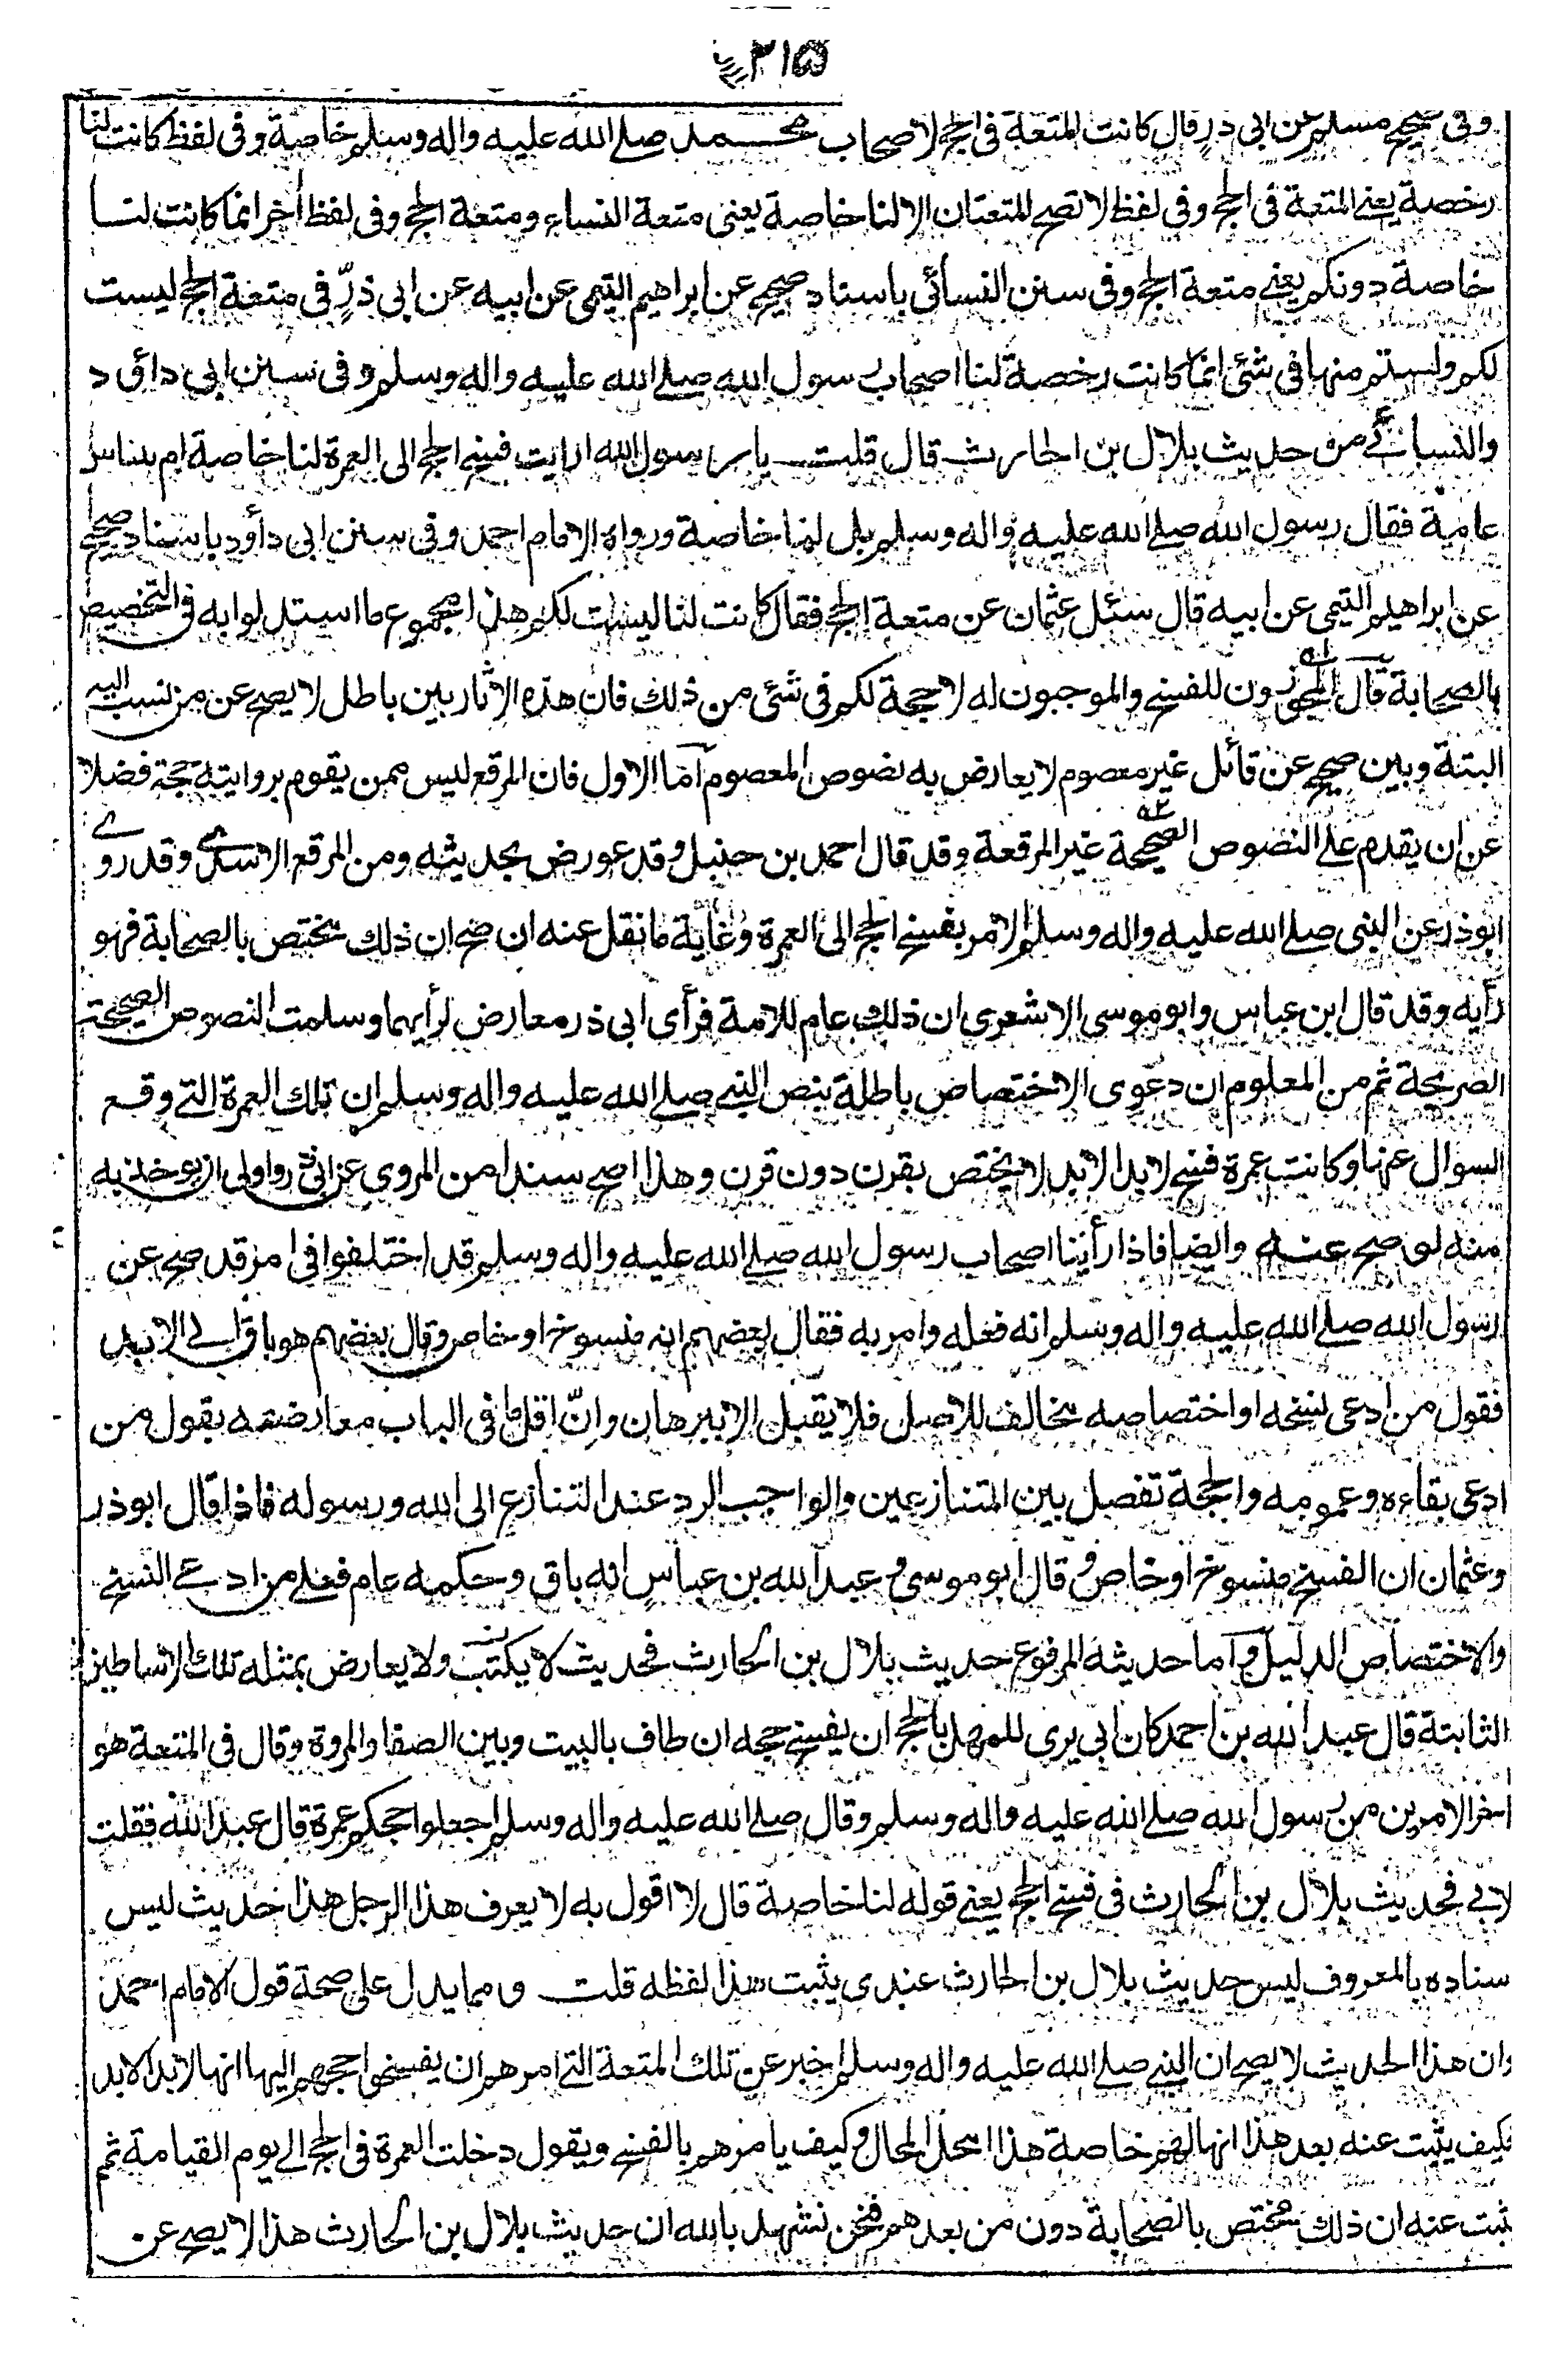 ۲۱۵
وفى صحيح مسلم عن ابى ذر قال كانت المتعة فى الحج لاصحاب محمد صلى الله عليه واله وسلم خاصة وفى لفظ كانت لنا
رخصة يعنى المتعة فى الحج وفى لفظ لا تصح المتعتان الا لنا خاصة يعنى متعة النساء ومتعة الحج وفى لفظ أخر انما كانت لنا
خاصة دونكم يعنى متعة الحج وفى سنن النسائى باسناد صحيح عن ابراهيم التيمى عن ابيه عن ابى ذرٍّ فى متعة الحج ليست
لكم ولستم منها فى شئ انما كانت رخصة لنا اصحاب رسول الله صلى الله عليه واله وسلم وفى سنن ابى داؤد
والنسائى من حديث بلال بن الحارث قال قلت يا رسول الله ارايت فسخ الحج الى العمرة لنا خاصة ام للناس
عامة فقال رسول الله صلى الله عليه واله وسلم بل لنا خاصة ورواه الامام احمد وفى سنن ابى داؤد باسناد صحيح
عن ابراهيم التيمى عن ابيه قال سئل عثمان عن متعة الحج فقال كانت لنا ليست لكم هذا مجموع ما استدلوا به فى التخصيص
بالصحابة قال المجوزون للفسخ والموجبون له لا حجة لكم فى شئ من ذلك فان هذه الاثار بين باطل لا يصح عن من نسب اليه
البتة وبين صحيح عن قائل غير معصوم لا يعارض به نصوص المعصوم اما الاول فان المرقع ليس ممن يقوم بروايته حجة فضلا
عن ان يقدم على النصوص الصحيحة غير المرقعة وقد قال احمد بن حنبل وقد عورض بحديثه ومن المرقع الاسدى وقد روى
ابو ذر عن النبى صلى الله عليه واله وسلم الامر بفسخ الحج الى العمرة وغاية ما نقل عنه ان صح ان ذلك يختص بالصحابة فهو
رأيه وقد قال ابن عباس وابو موسى الاشعرى ان ذلك عام للامة فرأى ابى ذر معارض لرأيهما وسلمت النصوص الصحيحة
الصريحة ثم من المعلوم ان دعوى الاختصاص باطلة بنص النبى صلى الله عليه واله وسلم ان تلك العمرة التى وقع
السوال عنها وكانت عمرة فسخ لابد الابد لا يختص بقرن دون قرن وهذا اصح سندا من المروى عن ابى ذر واولى ان يوخذ به
منه لو صح عنه وايضا فاذا رأينا اصحاب رسول الله صلى الله عليه واله وسلم قد اختلفوا فى امر قد صح عن
رسول الله صلى الله عليه واله وسلم انه فعله وامر به فقال بعضهم انه منسوخ او خاص وقال بعضهم هو باق الى الابد
فقول من ادعى نسخه او اختصاصه مخالف للاصل فلا يقبل الا ببرهان وانّ اقل ما فى الباب معارضته بقول من
ادعى بقاءه وعمومه والحجة تفصل بين المتنازعين والواجب الرد عند التنازع الى الله ورسوله فاذا قال ابو ذر
وعثمان ان الفسخ منسوخ او خاص وقال ابو موسى وعبد الله بن عباس انه باق وحكمه عام فعلى من ادعى النسخ
والاختصاص الدليل واما حديثه المرفوع حديث بلال بن الحارث فحديث لا يكتب ولا يعارض بمثله تلك الاساطين
الثابتة قال عبد الله بن احمد كان ابى يرى للمهل بالحج ان يفسخ حجه ان طاف بالبيت وبين الصفا والمروة وقال فى المتعة هو
اخر الامرين من رسول الله صلى الله عليه واله وسلم وقال صلى الله عليه واله وسلم اجعلوا حجكم عمرة قال عبد الله فقلت
لابى فحديث بلال بن الحارث فى فسخ الحج يعنى قوله لنا خاصة قال لا اقول به لا يعرف هذا الرجل هذا حديث ليس
سناده بالمعروف ليس حديث بلال بن الحارث عندى يثبت هذا لفظه قلت ومما يدل على صحة قول الامام احمد
وان هذا الحديث لا يصح ان النبى صلى الله عليه واله وسلم اخبر عن تلك المتعة التى امرهم ان يفسخوا حجهم اليها انها لابد الابد
فكيف يثبت عنه بعد هذا انها لهم خاصة هذا امحل المحال وكيف يامرهم بالفسخ ويقول دخلت العمرة فى الحج الى يوم القيامة ثم
يثبت عنه ان ذلك مختص بالصحابة دون من بعدهم فنحن نشهد بالله ان حديث بلال بن الحارث هذا لا يصح عن